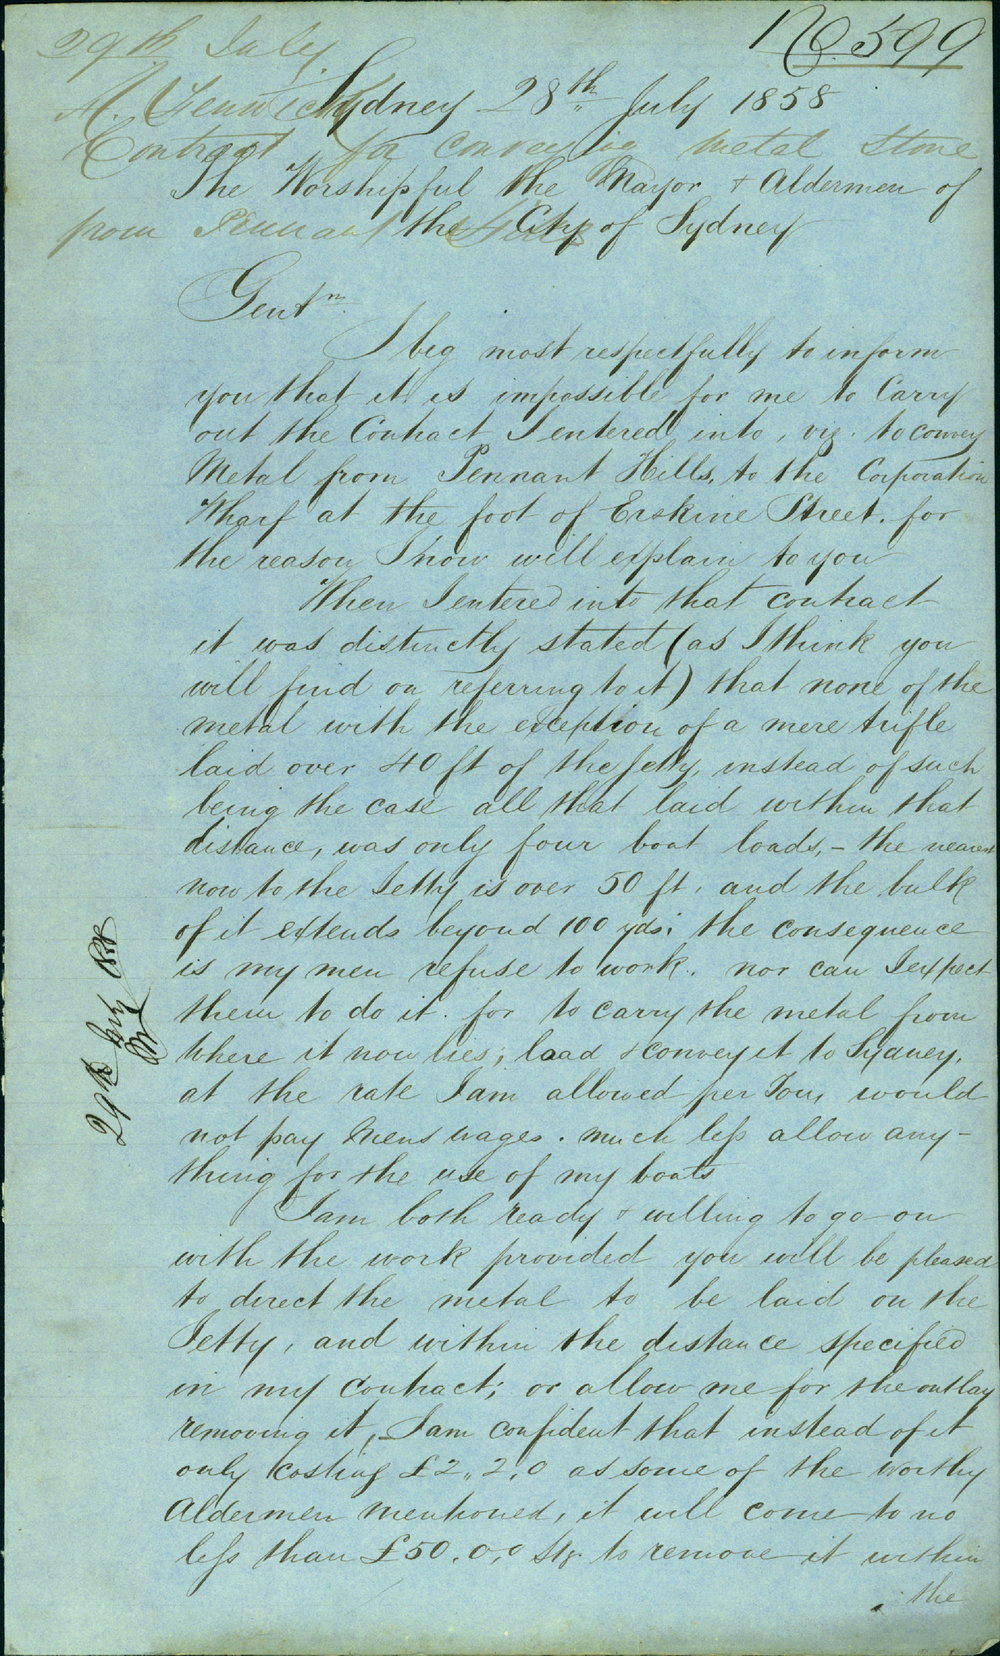 No. 599
29th July
Sydney 28th July 1858
A. Fenwick
Contract for conveying metal stone
The Worshipful the Mayor & Aldermen of
from Pennant Hills
the City of Sydney
Gentn.
I beg most respectfully to inform
you that it is impossible for me to Carry
out the Contract I entered into, viz. to convey
Metal from Pennant Hills, to the Corporation
Wharf at the foot of Erskine Street. for
the reason I now will explain to you
When I entered into that contract
it was distinctly stated (as I think you
will find on referring to it) that none of the
metal with the exception of a mere trifle
laid over 40 ft of the jetty, instead of such
being the case all that laid within that
distance, was only four boat loads, - the nearest
now to the Jetty is over 50 ft. and the bulk
of it extends beyond 100 yds; the consequence
is my men refuse to work. nor can I expect
them to do it. for to carry the metal from
where it now lies; load & convey it to Sydney,
at the rate I am allowed per Ton, would
not pay Mens wages. much less allow any-
thing for the use of my boats
I am both ready & willing to go on
with the work provided you will be pleased
to direct the metal to be laid on the
Jetty, and within the distance specified
in my Contract; or allow me for the outlay
removing it, I am confident that instead of it
only costing £2,,2,,0 as some of the worthy
Aldermen mentioned, it will come to no
less than £50.0,0 Stg. to remove it within
the
29th July